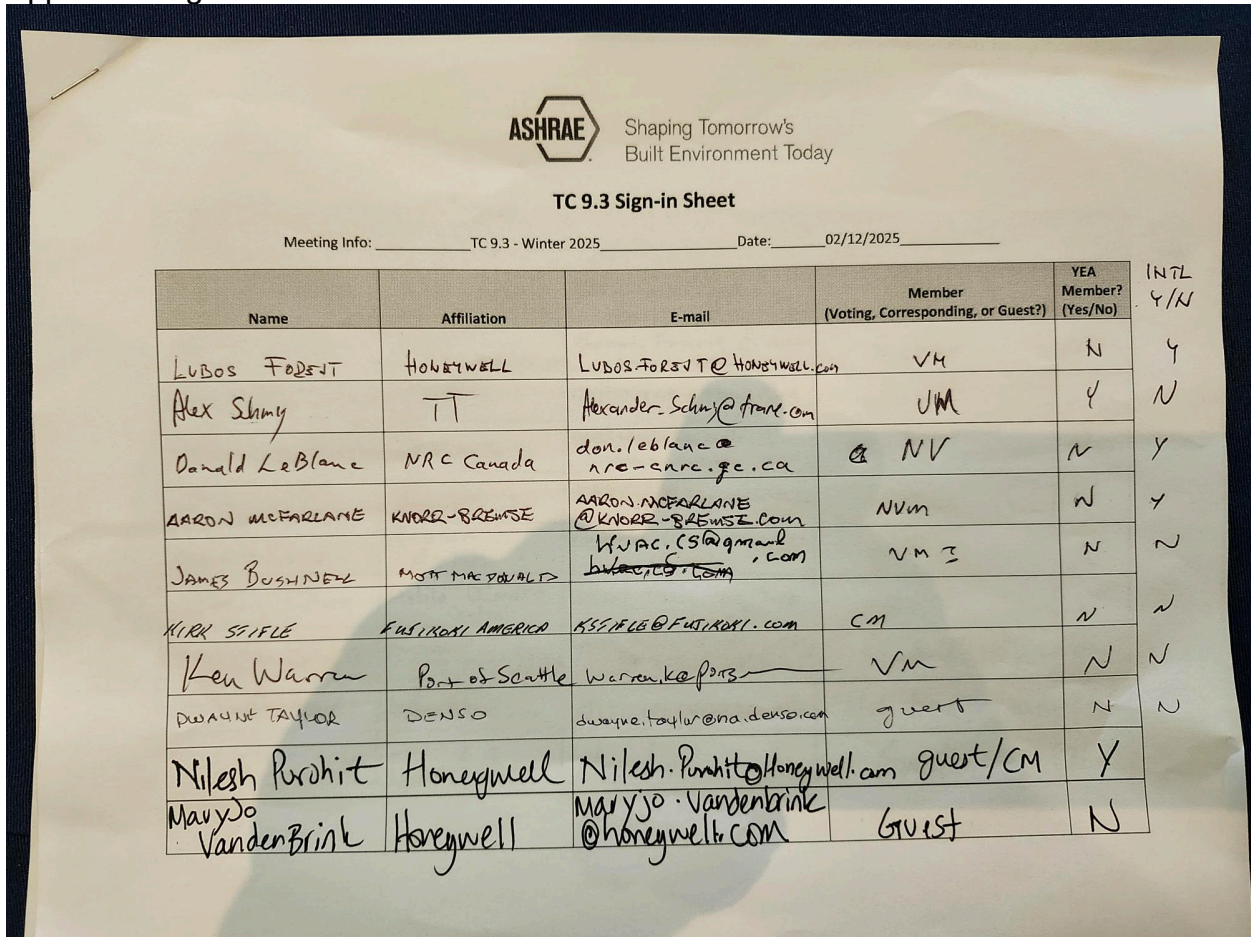 ASHRAE Shaping Tomorrow's
Built Environment Today
TC 9.3 Sign-in Sheet
Meeting Info: TC 9.3 - Winter 2025 Date: 02/12/2025
Name Affiliation E-mail Member (Voting, Corresponding, or Guest?) YEA Member? (Yes/No) INTL Y/N
LUBOS FOREJT HONEYWELL LUBOS.FOREJT@HONEYWELL.com VM N Y
Alex Schmy TT Alexander_Schmy@trane.com VM Y N
Donald LeBlanc NRC Canada don.leblanc@ NV N Y
nrc-cnrc.gc.ca
AARON MCFARLANE KNORR-BREMSE AARON.MCFARLANE NVM N Y
@KNORR-BREMSE.COM
JAMES BUSHNELL MOTT MACDONALD HVAC.CS@gmail VM ? N N
.com
KIRK SEIFLE FUJIKOKI AMERICA KSEIFLE@FUJIKOKI.com CM N N
Ken Warren Port of Seattle Warren.k@ports VM N N
DWAYNE TAYLOR DENSO dwayne.taylor@na.denso.com guest N N
Nilesh Purohit Honeywell Nilesh.Purohit@Honeywell.com guest/CM Y
MaryJo
VandenBrink Honeywell Maryjo.Vandenbrink
@honeywell.com Guest N